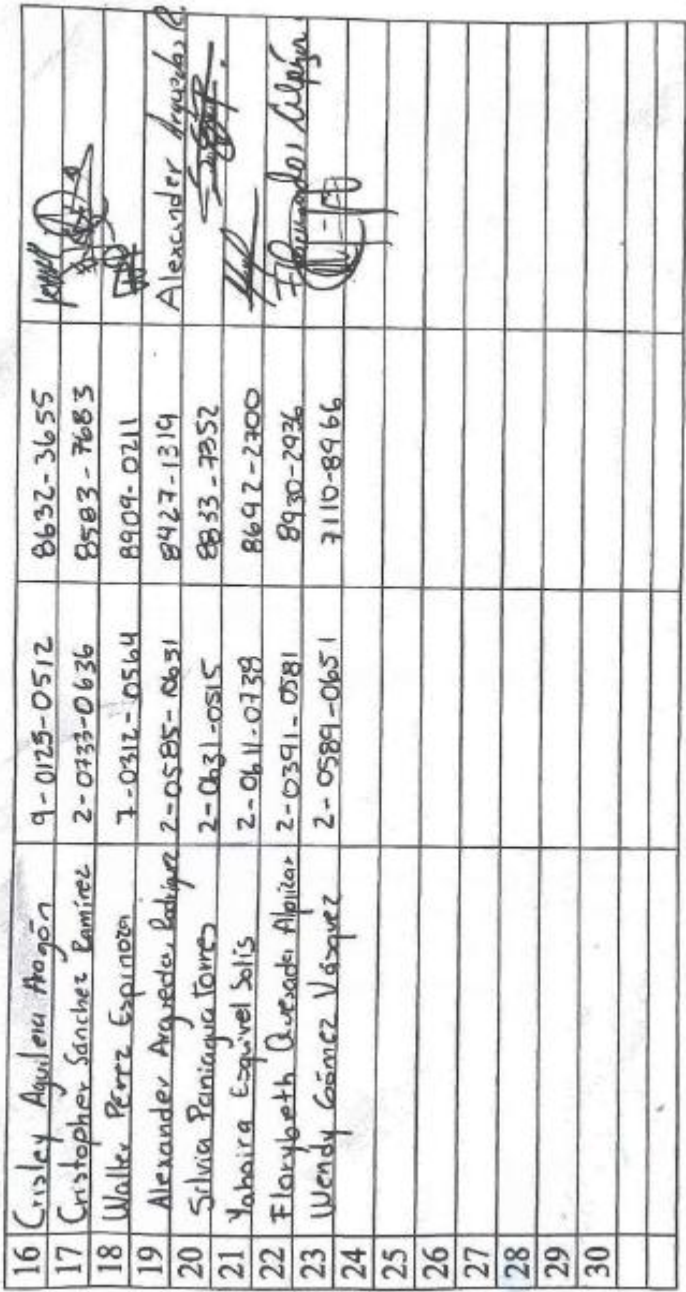 16 Crisley Aguilera Aragón 9-0125-0512 8632-3655
17 Cristopher Sánchez Ramírez 2-0733-0636 8583-7683
18 Walter Pérez Espinoza 7-0312-0564 8909-0211
19 Alexander Arguedas Rodríguez 2-0585-0631 8427-1319 Alexander Arguedas R.
20 Silvia Paniagua Torres 2-0631-0515 8833-7352
21 Yahaira Esquivel Solís 2-0611-0739 8692-2700
22 Florybeth Quesada Alpízar 2-0391-0581 8930-2936
23 Wendy Gómez Vásquez 2-0589-0651 7110-8966
24
25
26
27
28
29
30